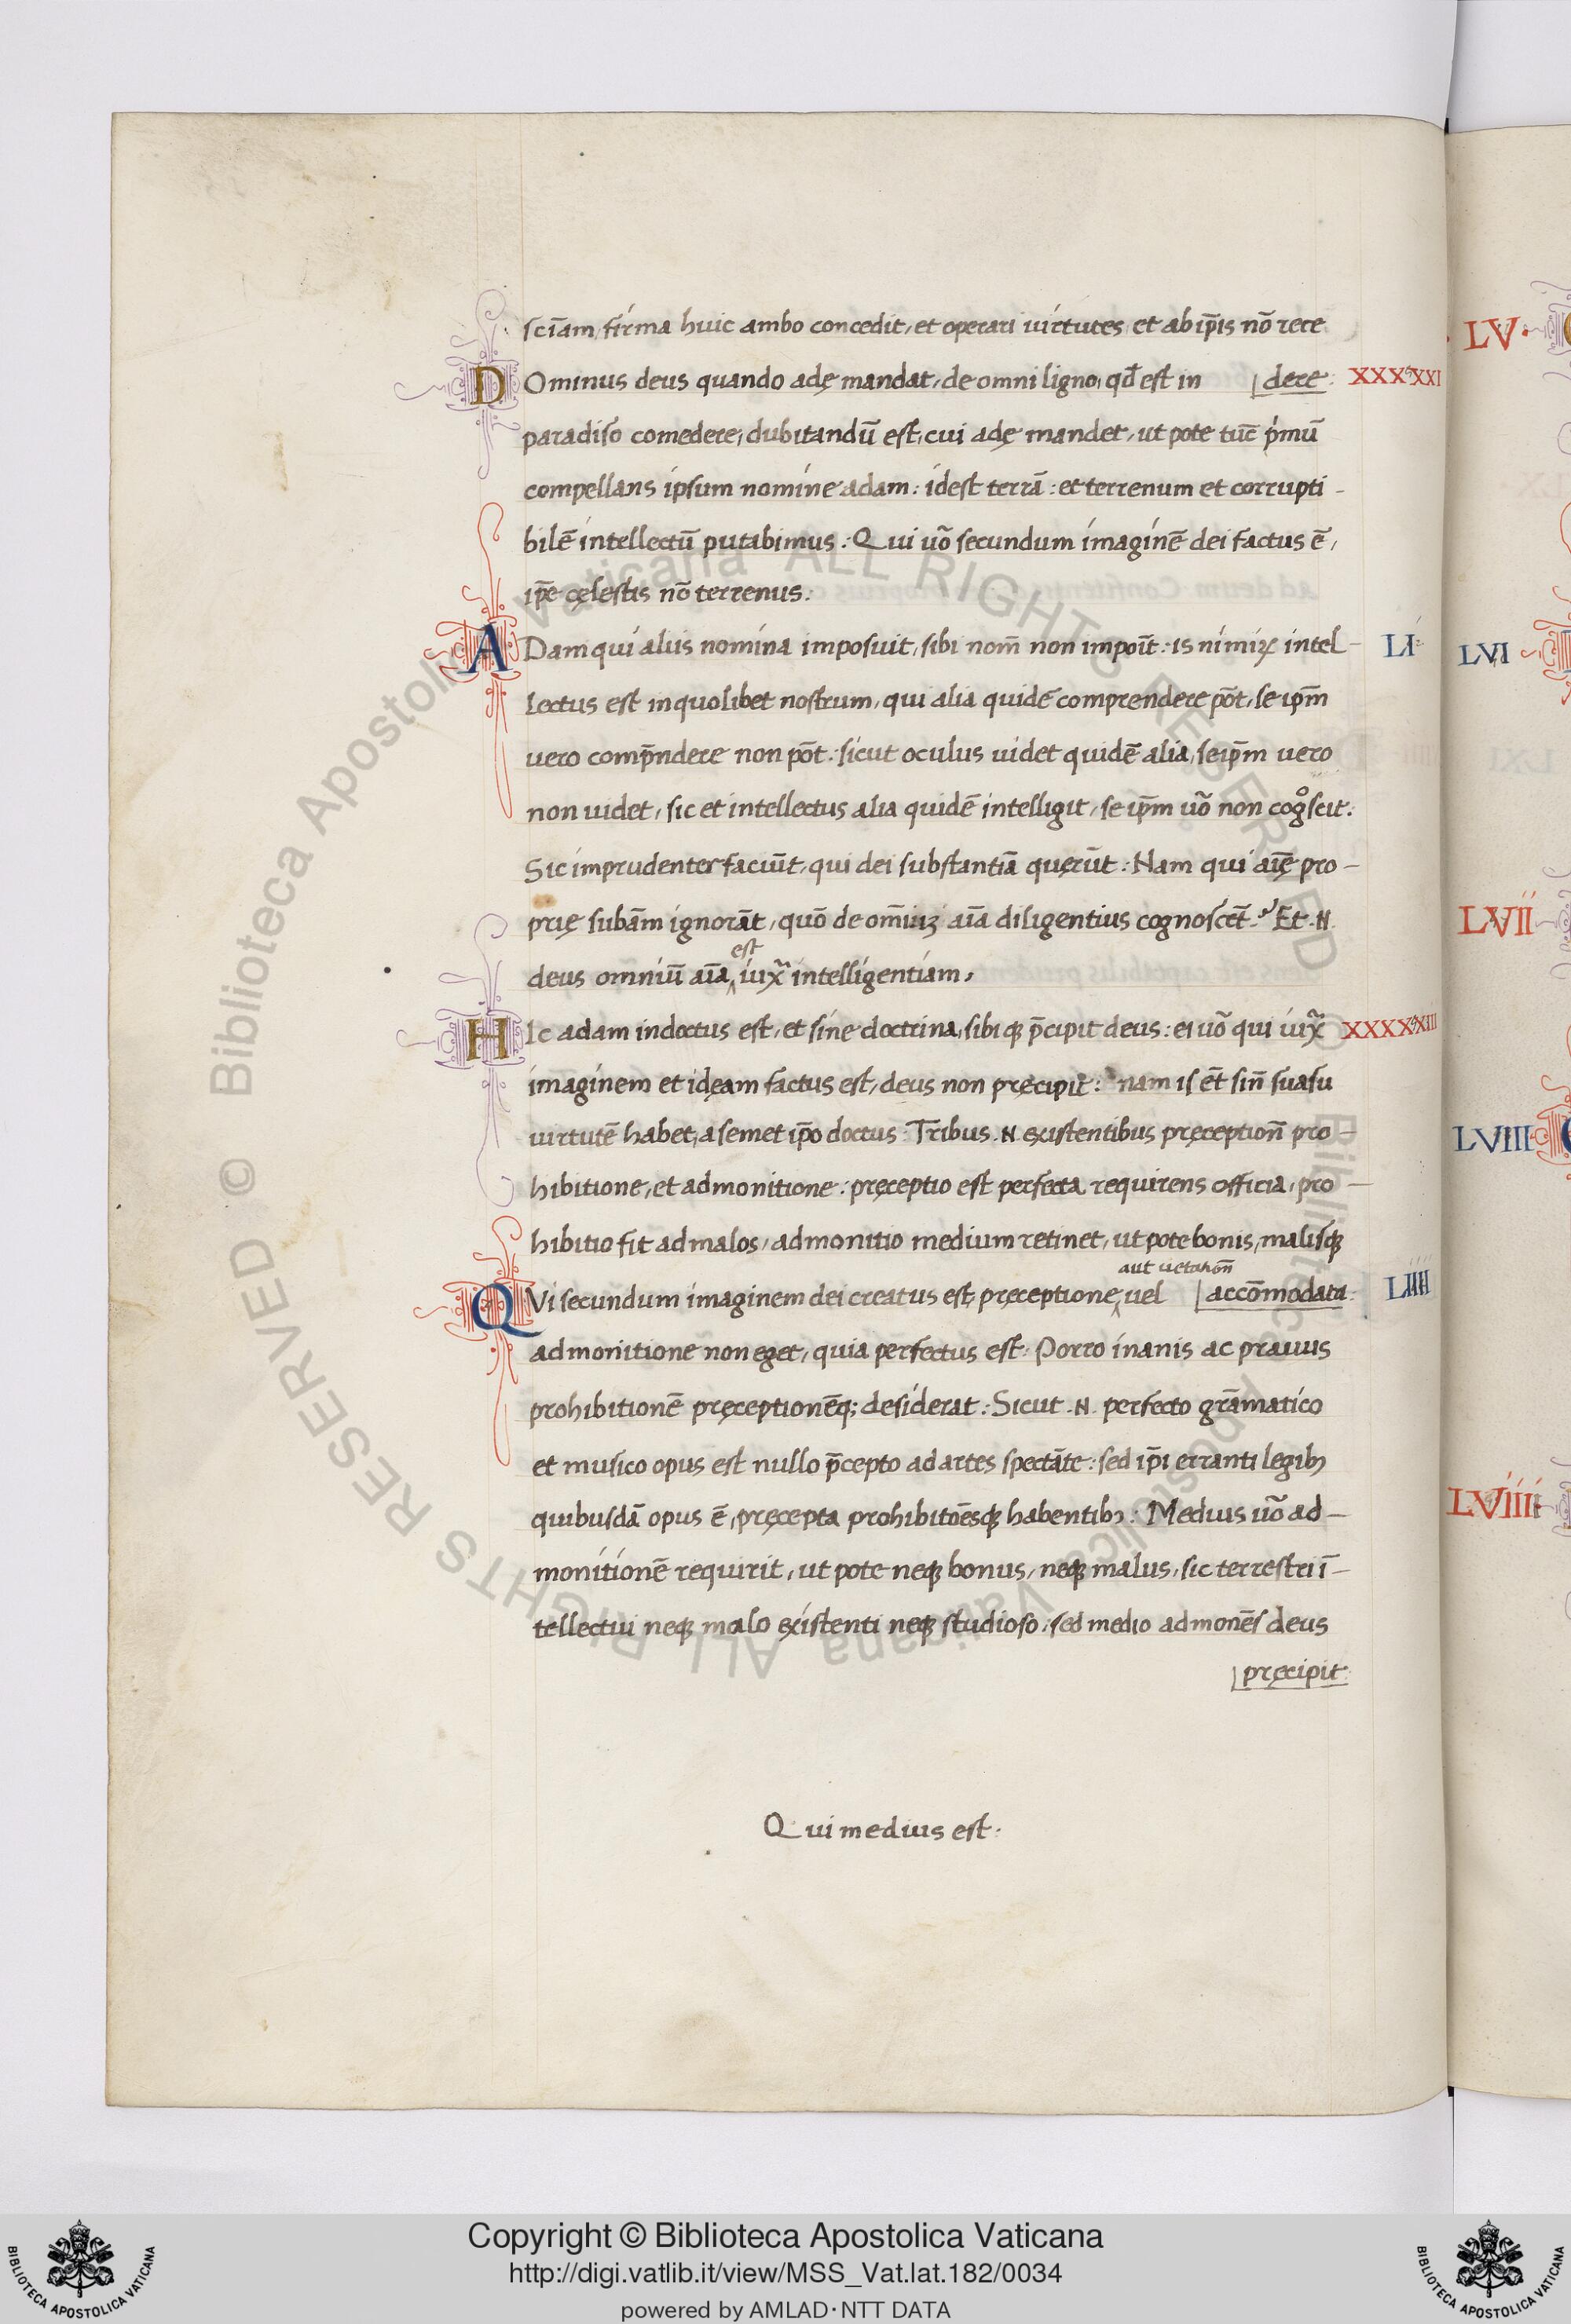 sciam, firma huic ambo concedit, et operari uirtutes, et ab ip̄is nō rere
Dominus deus quando adę mandat, de omni ligno, qd̄ est in | dere:
paradiso comedere, dubitandū est, cui adę mandet, ut pote tūc p̍mū
compellans ipsum nomine adam: idest terrā: et terrenum et corrupti-
bilē intellectū putabimus: Qui uō secundum imaginē dei factus ē,
ip̄e cęlestis nō terrenus:
ADam qui aliis nomina imposuit, sibi nom̄ non impoīt: is nimiꝝ intel- LI
lectus est in quolibet nostrum, qui alia quidē comprendere pōt, se ip̄m
uero comp̄ndere non pōt: sicut oculus uidet quidē alia, se ip̄m uero
non uidet, sic et intellectus alia quidē intelligit, se ip̄m uō non cogͦscit:
Sic imprudenter faciūt, qui dei substantiā quęrūt: Nam qui aīę pro-
prię subām ignorāt, quō de om̄iuꝫ aīa diligentius cognoscēt? Et .N.
deus omniū aīa est iuxͣ intelligentiam,
HIc adam indoctus est, et sine doctrina, sibiqꝫ p̄cipit deus: ei uō qui iuxͣ
imaginem et idęam factus est, deus non pręcipit: nam is ēt sin̄ suasu
uirtutē habet, a semet ip̄o doctus: Tribus .N. existentibus pręception̄ pro-
hibitione, et admonitione: pręceptio est perfecta requirens officia, pro-
hibitio fit ad malos, admonitio medium retinet, ut pote bonis, malisqꝫ
aut uetation̄
QVi secundum imaginem dei creatus est, pręceptione, uel | accōmodata: LIIII
admonitione non eget, quia perfectus est: Porro inanis ac prauus
prohibitionē pręceptionēq; desiderat: Sicut .N. perfecto grāmatico
et musico opus est nullo p̄cepto ad artes spectāte: sed ip̄i erranti legibꝫ
quibusdā opus ē, pręcepta prohibitōesqꝫ habentibꝫ: Medius uō ad-
monitionē requirit, ut pote neqꝫ bonus, neqꝫ malus, sic terrestri ī-
tellectui neqꝫ malo existenti neqꝫ studioso, sed medio admonēs deus
| pręcipit:
Qui medius est:
LV
LVI
LVII
LVIII
LVIIII
Copyright © Biblioteca Apostolica Vaticana
http://digi.vatlib.it/view/MSS_Vat.lat.182/0034
powered by AMLAD·NTT DATA
BIBLIOTECA APOSTOLICA VATICANA
BIBLIOTECA APOSTOLICA VATICANA